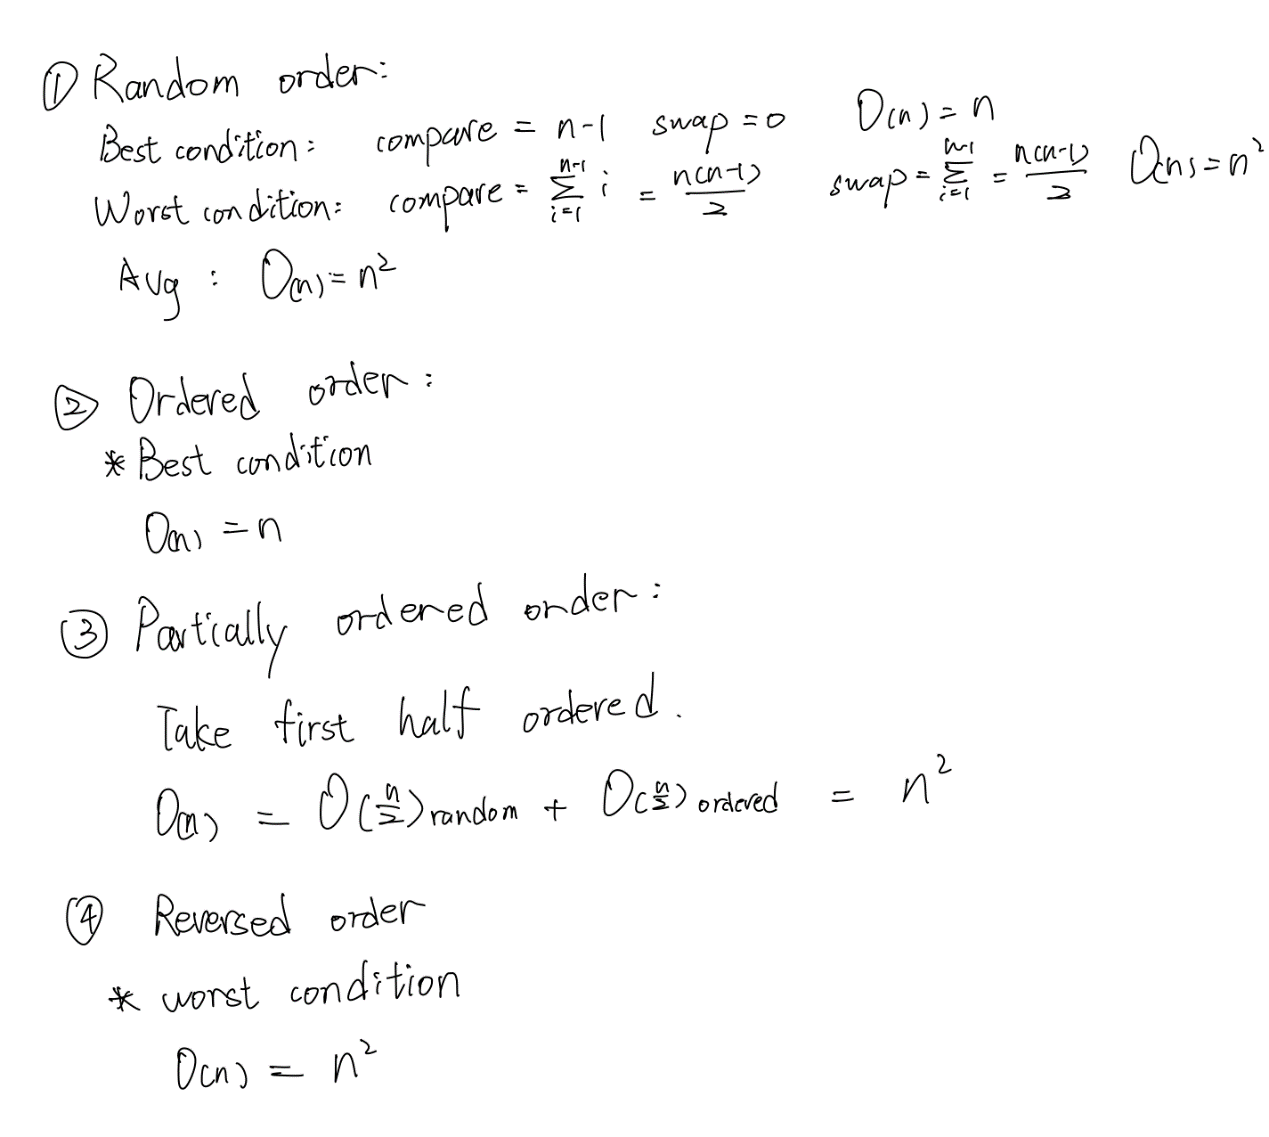 ① Random order:
Best condition: compare = n-1 swap = 0 O(n) = n
Worst condition: compare = ∑_{i=1}^{n-1} i = n(n-1)/2 swap = ∑_{i=1}^{n-1} = n(n-1)/2 O(n) = n²
Avg : O(n) = n²
② Ordered order:
* Best condition
O(n) = n
③ Partially ordered order:
Take first half ordered.
O(n) = O(n/2) random + O(n/2) ordered = n²
④ Reversed order
* worst condition
O(n) = n²